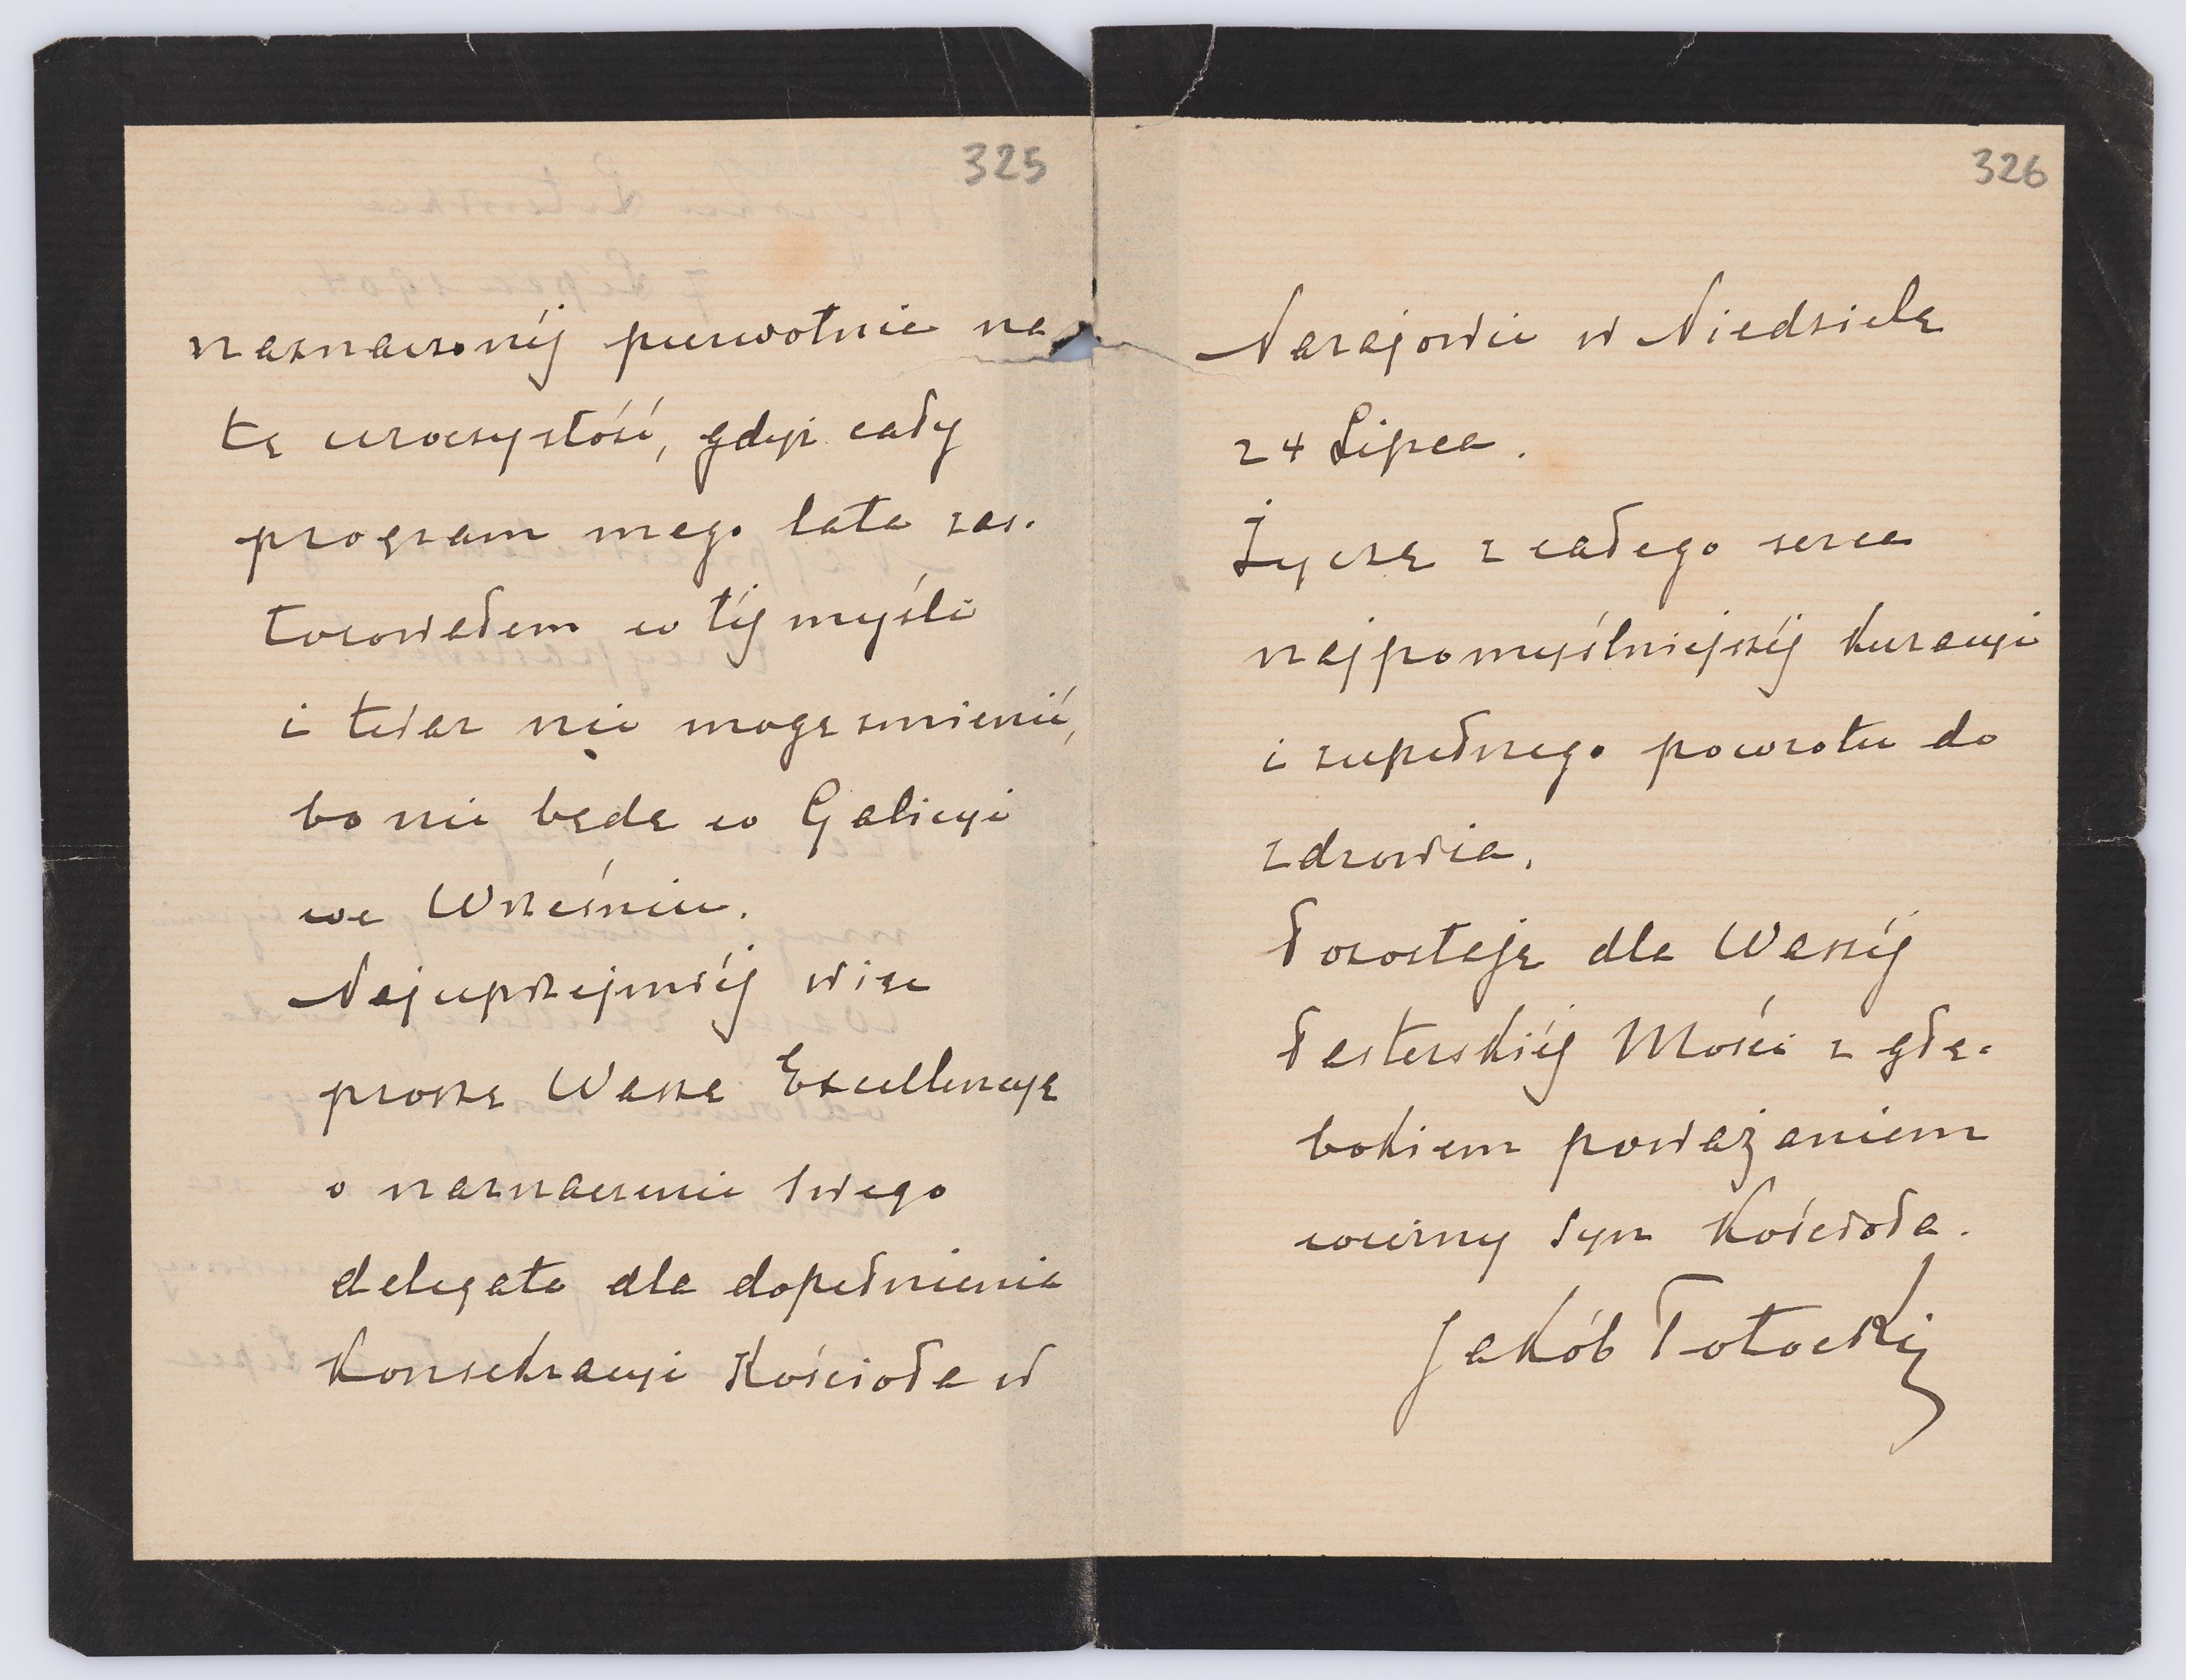 325
naznaczonéj pierwotnie na
tę uroczystość, gdyż cały
program mego lata zas-
tosowałem w téj myśli
i teraz nie mogę zmienić,
bo nie będę w Galicyi
we Wrześniu.
Najuprzejmiéj więc
proszę Waszę Excellencyę
o naznaczenie swego
delegata dla dopełnienia
Konsekracyi Kościoła w
326
Narajowie w Niedzielę
24 Lipca.
Życzę z całego serca
najpomyślniejszéj Kuracyi
i zupełnego powrotu do
zdrowia.
Pozostaję dla Waszéj
Pasterskiéj Mości z głę-
bokiem poważaniem
wierny syn Kościoła.
Jakób Potocki